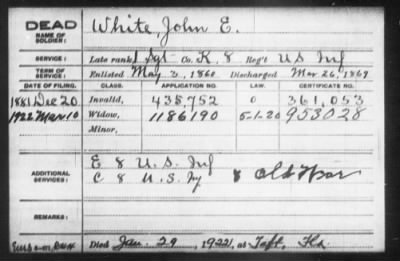 DEAD
NAME OF SOLDIER: White, John E.
SERVICE: Late rank 1 Sgt Co. K, 8 Reg't U S Inf
TERM OF SERVICE: Enlisted May 2, 1860 Discharged Mar 26, 1867
DATE OF FILING. CLASS. APPLICATION NO. LAW. CERTIFICATE NO.
1881 Dec 20 Invalid, 435,752 0 361,053
1922 Mar 10 Widow, 1186190 5-1-20 953028
Minor,
ADDITIONAL SERVICES: E 8 U.S. Inf
C 8 U.S. Inf & Old War
REMARKS:
Died Jan. 29, 1922, at Taft, Fla.